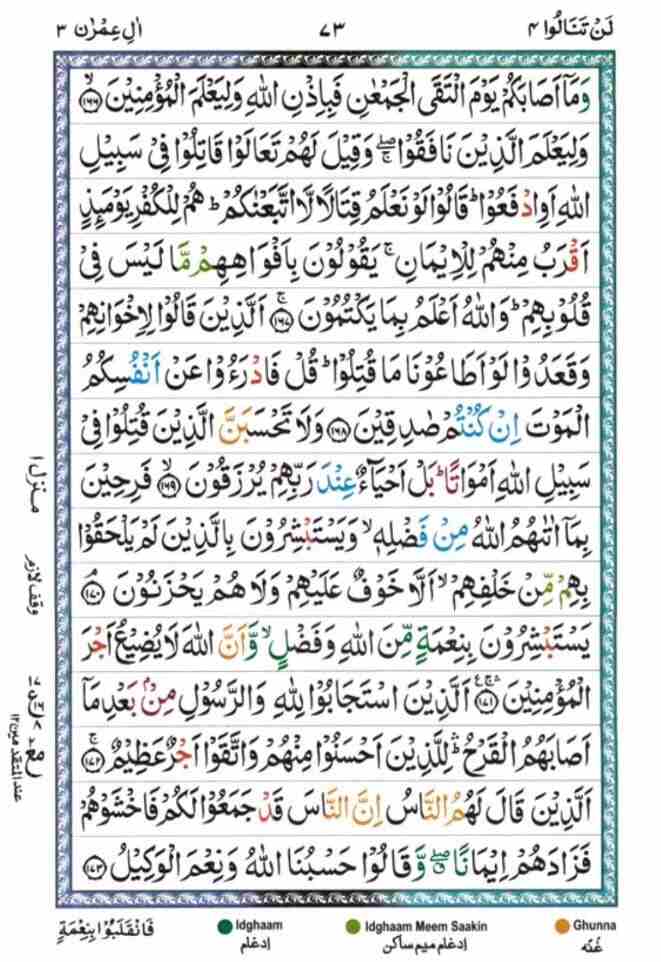 لَنْ تَنَالُوا ٤
٧٣
اٰلِ عِمْرٰن ٣
وَمَاۤ اَصَابَكُمْ يَوْمَ الْتَقَى الْجَمْعٰنِ فَبِاِذْنِ اللّٰهِ وَلِيَعْلَمَ الْمُؤْمِنِيْنَ ۙ‏﴿۱۶۶﴾
وَلِيَعْلَمَ الَّذِيْنَ نَافَقُوْا ۖۚ وَقِيْلَ لَهُمْ تَعَالَوْا قَاتِلُوْا فِىْ سَبِيْلِ
اللّٰهِ اَوِادْفَعُوْا ؕ قَالُوْا لَوْ نَعْلَمُ قِتَالًا لَّا تَّبَعْنٰكُمْ ؕ هُمْ لِلْكُفْرِ يَوْمَئِذٍ
اَقْرَبُ مِنْهُمْ لِلْاِيْمَانِ ۚ يَقُوْلُوْنَ بِاَفْوَاهِهِمْ مَّا لَيْسَ فِىْ
قُلُوْبِهِمْ ؕ وَاللّٰهُ اَعْلَمُ بِمَا يَكْتُمُوْنَ ۚ‏﴿۱۶۷﴾ اَلَّذِيْنَ قَالُوْا لِاِخْوَانِهِمْ
وَقَعَدُوْا لَوْ اَطَاعُوْنَا مَا قُتِلُوْا ؕ قُلْ فَادْرَءُوْا عَنْ اَنْفُسِكُمُ
الْمَوْتَ اِنْ كُنْتُمْ صٰدِقِيْنَ ‏﴿۱۶۸﴾ وَلَا تَحْسَبَنَّ الَّذِيْنَ قُتِلُوْا فِىْ
سَبِيْلِ اللّٰهِ اَمْوَاتًا ؕ بَلْ اَحْيَآءٌ عِنْدَ رَبِّهِمْ يُرْزَقُوْنَ ۙ‏﴿۱۶۹﴾ فَرِحِيْنَ
بِمَاۤ اٰتٰٮهُمُ اللّٰهُ مِنْ فَضْلِهٖ ۙ وَيَسْتَبْشِرُوْنَ بِالَّذِيْنَ لَمْ يَلْحَقُوْا
بِهِمْ مِّنْ خَلْفِهِمْ ۙ اَلَّا خَوْفٌ عَلَيْهِمْ وَلَا هُمْ يَحْزَنُوْنَ ۘ‏﴿۱۷۰﴾
يَسْتَبْشِرُوْنَ بِنِعْمَةٍ مِّنَ اللّٰهِ وَفَضْلٍ ۙ وَّاَنَّ اللّٰهَ لَا يُضِيْعُ اَجْرَ
الْمُؤْمِنِيْنَ ‏﴿۱۷۱﴾ اَلَّذِيْنَ اسْتَجَابُوْا لِلّٰهِ وَالرَّسُوْلِ مِنْۢ بَعْدِ مَاۤ
اَصَابَهُمُ الْقَرْحُ ؕ لِلَّذِيْنَ اَحْسَنُوْا مِنْهُمْ وَاتَّقَوْا اَجْرٌ عَظِيْمٌ ۚ‏﴿۱۷۲﴾
اَلَّذِيْنَ قَالَ لَهُمُ النَّاسُ اِنَّ النَّاسَ قَدْ جَمَعُوْا لَكُمْ فَاخْشَوْهُمْ
فَزَادَهُمْ اِيْمَانًا ۖ وَّقَالُوْا حَسْبُنَا اللّٰهُ وَنِعْمَ الْوَكِيْلُ ‏﴿۱۷۳﴾
منزل ١
وقف لازم
عند المتقدمين ١٢
فَانْقَلَبُوْا بِنِعْمَةٍ
Idghaam
ادغام
Idghaam Meem Saakin
ادغام میم ساکن
Ghunna
غُنّه